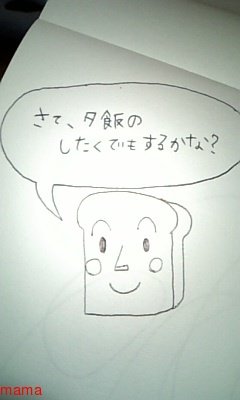 さて、夕飯の
したくでもするかな?
mama